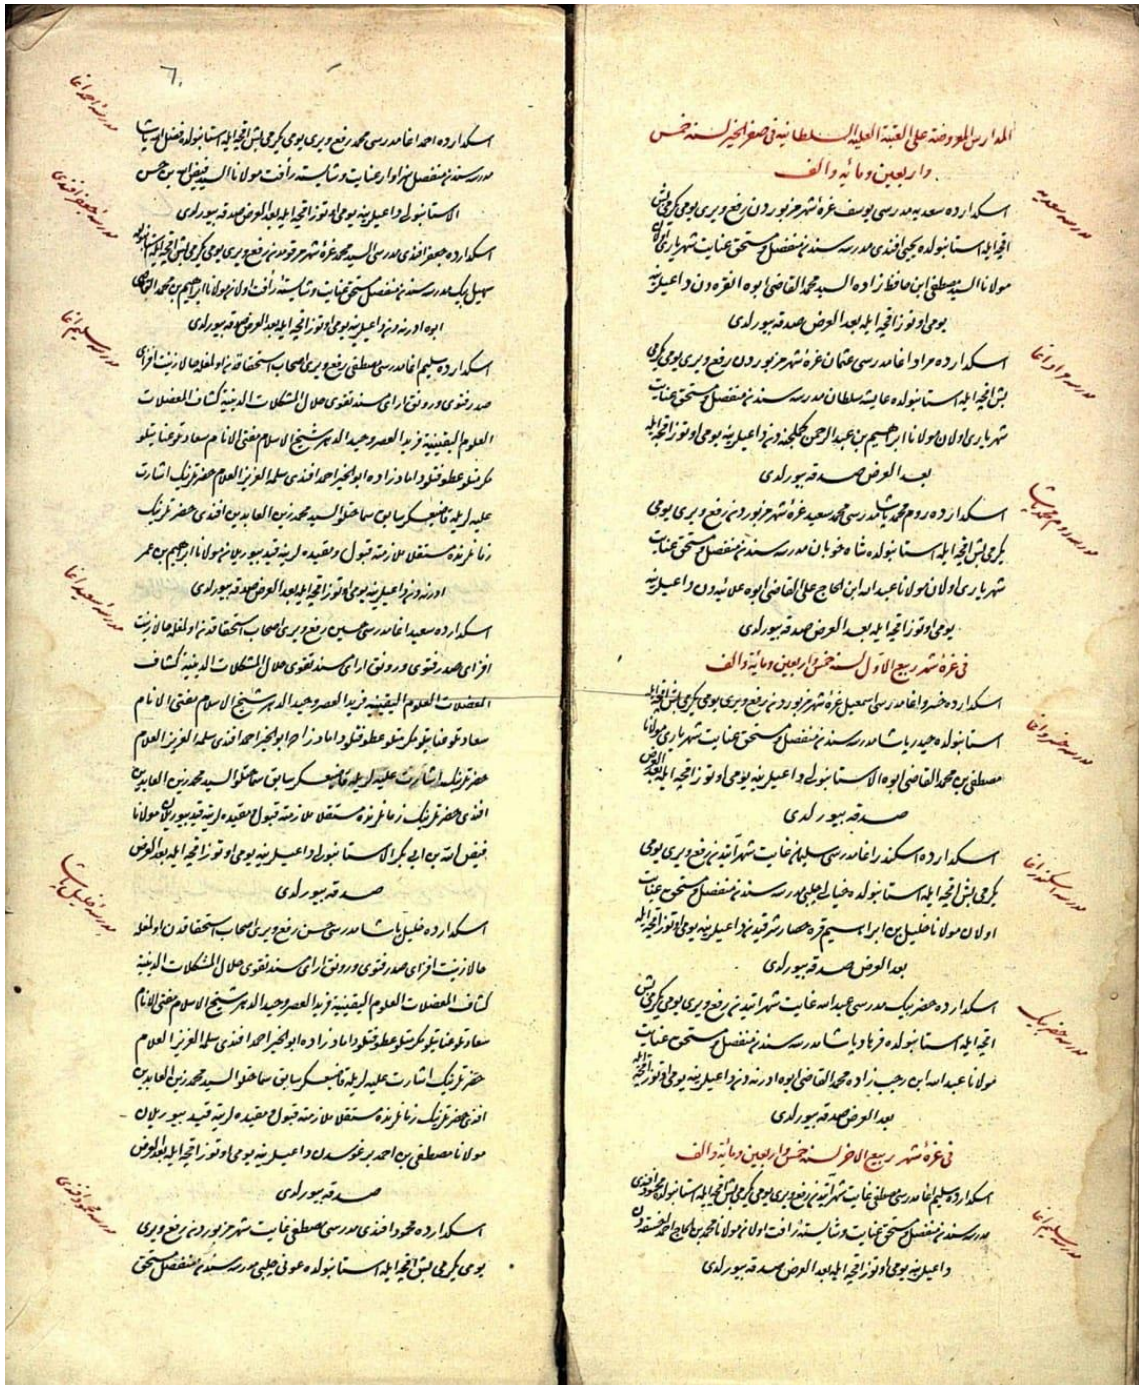 المدارس المعروضة على العتبة العلية السلطانية فى صفر الخير لسنة خمس
واربعين ومائة والف
مدرسه سعديه
اسكدارده سعديه مدرسى يوسف غرهٔ شهر مزبوردن رفع ويرى يومى يكرمى بش
اقچه ايله استانبولده يحيى افندى مدرسه سندن منفصل ومستحق عنايت شهريارى اولان
مولانا السيد مصطفى ابن حافظ زاده السيد محمد القاضى ابوه الفره دن داعيلرينه
يومى اوتوز اقچه ايله بعد العرض صدقه بيورلدى
مدرسه مراد اغا
اسكدارده مراد اغا مدرسى عثمان غرهٔ شهر مزبوردن رفع ويرى يومى يكرمى
بش اقچه ايله استانبولده عايشه سلطان مدرسه سندن منفصل ومستحق عنايت
شهريارى اولان مولانا ابراهيم بن عبد الرحمن داعيلرينه يومى اوتوز اقچه ايله
بعد العرض صدقه بيورلدى
مدرسه روم محمد پاشا
اسكدارده روم محمد پاشا مدرسى محمد سعيد غرهٔ شهر مزبوردن رفع ويرى يومى
يكرمى بش اقچه ايله استانبولده شاه خوبان مدرسه سندن منفصل ومستحق عنايت
شهريارى اولان مولانا عبد الله ابن الحاج على القاضى ابوه علائيه دن داعيلرينه
يومى اوتوز اقچه ايله بعد العرض صدقه بيورلدى
فى غرهٔ شهر ربيع الاول لسنة خمس واربعين ومائة والف
مدرسه خسرو اغا
اسكدارده خسرو اغا مدرسى اسمعيل غرهٔ شهر مزبوردن رفع ويرى يومى يكرمى بش اقچه ايله
استانبولده حيدر پاشا مدرسه سندن منفصل ومستحق عنايت شهريارى مولانا
مصطفى بن محمد القاضى ابوه الاستانبولى داعيلرينه يومى اوتوز اقچه ايله بعد العرض
صدقه بيورلدى
مدرسه اسكندر اغا
اسكدارده اسكندر اغا مدرسى سليمان غايت شهر آتيدن رفع ويرى يومى
يكرمى بش اقچه ايله استانبولده خيالى چلبى مدرسه سندن منفصل ومستحق عنايت
اولان مولانا خليل بن ابراهيم قره حصار شرقيدن داعيلرينه يومى اوتوز اقچه ايله
بعد العرض صدقه بيورلدى
مدرسه خضر بيك
اسكدارده خضر بيك مدرسى عبد الله غايت شهر آتيدن رفع ويرى يومى يكرمى بش
اقچه ايله استانبولده فرهاد پاشا مدرسه سندن منفصل ومستحق عنايت
مولانا عبد الله ابن رجب زاده محمد القاضى ابوه ادرنه دن داعيلرينه يومى اوتوز اقچه ايله
بعد العرض صدقه بيورلدى
فى غرهٔ شهر ربيع الاخر لسنة خمس واربعين ومائة والف
مدرسه سليم اغا
اسكدارده سليم اغا مدرسى مصطفى غايت شهر آتيدن رفع ويرى يومى يكرمى بش اقچه ايله استانبولده محمود افندى
مدرسه سندن منفصل ومستحق عنايت وشايستهٔ رأفت اولان مولانا محمد بن الحاج احمد
داعيلرينه يومى اوتوز اقچه ايله بعد العرض صدقه بيورلدى
مدرسهٔ احمد اغا
اسكدارده احمد اغا مدرسى محمد رفع ويرى يومى يكرمى بش اقچه ايله استانبولده فضل الله پاشا
مدرسه سندن منفصل سزاوار عنايت وشايستهٔ رأفت مولانا السيد فيض الله بن حسن
الاستانبولى داعيلرينه يومى اوتوز اقچه ايله بعد العرض صدقه بيورلدى
مدرسهٔ جعفر افندى
اسكدارده جعفر افندى مدرسى السيد محمد غرهٔ شهر مرقومدن رفع ويرى يومى يكرمى بش اقچه ايله استانبولده
سهيل بيك مدرسه سندن منفصل مستحق عنايت وشايستهٔ رأفت اولان مولانا ابراهيم بن محمد القاضى
ابوه ادرنه دن داعيلرينه يومى اوتوز اقچه ايله بعد العرض صدقه بيورلدى
مدرسهٔ سليم اغا
اسكدارده سليم اغا مدرسى مصطفى رفع ويرى اصحاب استحقاقدن اولمغله حالا زينت افزاى
صدر فتوى ورونق اراى مسند تقوى حلال المشكلات الدينية كشاف المعضلات
العلوم اليقينية فريد العصر وحيد الدهر شيخ الاسلام مفتى الانام سعادتلو عنايتلو
مكرمتلو عطوفتلو داماد زاده ابو الخير احمد افندى سلمه العزيز العلام حضرتلرينك اشارت
عليه لريله قاضيعسكر سابق سماحتلو السيد محمد زين العابدين افندى حضرتلرينك
زمانلرنده مستقلا ملازمته قبول ومقيده لرينه قيد بيوريلان مولانا ابراهيم بن عمر
ادرنه دن داعيلرينه يومى اوتوز اقچه ايله بعد العرض صدقه بيورلدى
مدرسهٔ سعيد اغا
اسكدارده سعيد اغا مدرسى حسين رفع ويرى اصحاب استحقاقدن اولمغله حالا زينت
افزاى صدر فتوى ورونق اراى مسند تقوى حلال المشكلات الدينية كشاف
المعضلات العلوم اليقينية فريد العصر وحيد الدهر شيخ الاسلام مفتى الانام
سعادتلو عنايتلو مكرمتلو عطوفتلو داماد زاده ابو الخير احمد افندى سلمه العزيز العلام
حضرتلرينك اشارت عليه لريله قاضيعسكر سابق سماحتلو السيد محمد زين العابدين
افندى حضرتلرينك زمانلرنده مستقلا ملازمته قبول ومقيده لرينه قيد بيوريلان مولانا
فيض الله بن ابى بكر الاستانبولى داعيلرينه يومى اوتوز اقچه ايله بعد العرض
صدقه بيورلدى
مدرسهٔ خليل پاشا
اسكدارده خليل پاشا مدرسى حسن رفع ويرى اصحاب استحقاقدن اولمغله
حالا زينت افزاى صدر فتوى ورونق اراى مسند تقوى حلال المشكلات الدينية
كشاف المعضلات العلوم اليقينية فريد العصر وحيد الدهر شيخ الاسلام مفتى الانام
سعادتلو عنايتلو مكرمتلو عطوفتلو داماد زاده ابو الخير احمد افندى سلمه العزيز العلام
حضرتلرينك اشارت عليه لريله قاضيعسكر سابق سماحتلو السيد محمد زين العابدين
افندى حضرتلرينك زمانلرنده مستقلا ملازمته قبول ومقيده لرينه قيد بيوريلان
مولانا مصطفى بن احمد برغوسدن داعيلرينه يومى اوتوز اقچه ايله بعد العرض
صدقه بيورلدى
مدرسه محمود افندى
اسكدارده محمود افندى مدرسى مصطفى غايت شهر مزبوردن رفع ويرى
يومى يكرمى بش اقچه ايله استانبولده عونى چلبى مدرسه سندن منفصل مستحق